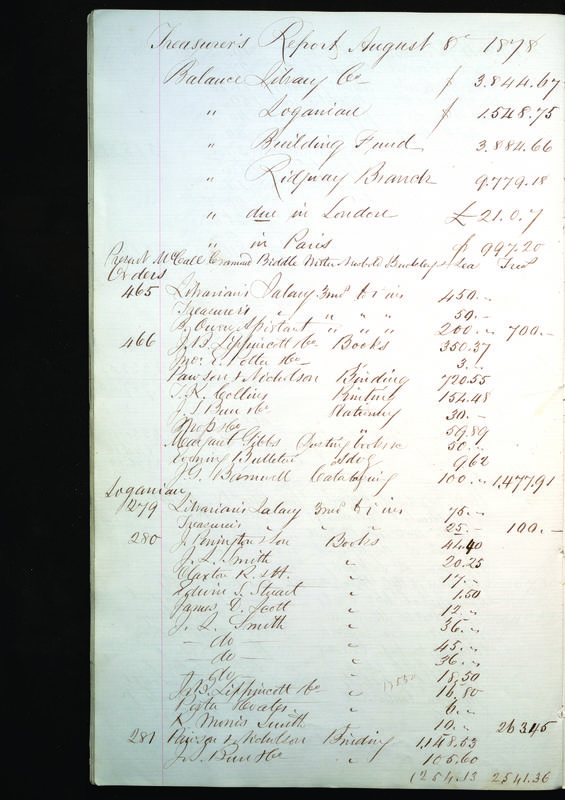 Treasurer's Report August 8th 1878
Balance Library Co $ 3.844.67
" Loganian $ 1.548.75
" Building Fund 3.884.66
" Ridgway Branch 9.779.18
" due in London £ 21.0.7
" in Paris $ 997.20
Present McCall Biddle Lea
Orders
465 Librarian's Salary 3 mos 450.
Treasurer's " " " " 50.
B. Owen Assistant " " " 200. 700.
466 J.B. Lippincott & Co Books 350.37
Jno. E. Potter & Co 3.
Pawson & Nicholson Binding 720.55
T.K. Collins Printing 154.48
Stationery 30.
59.89
Margaret Gibbs Dusting books 50.
Evening Bulletin 9.62
J.G. Barnwell Cataloguing 100. 1,477.91
Loganian
279 Librarian's Salary 3 mos 75.
Treasurer's " " 25. 100.
280 J. Penington & Son Books 44.40
J.L. Smith " 20.25
Claxton R. & H. " 17.
Edwin S. Stuart " 1.50
James D. Scott " 12.
J.L. Smith " 36.
do " 45.
do " 36.
do " 18.50
J.B. Lippincott & Co " 16.80
Porter & Coates " 6.
R. Morris Smith " 10. 263.45
281 Pawson & Nicholson Binding 1,148.53
" 105.60
1254.13 2541.36